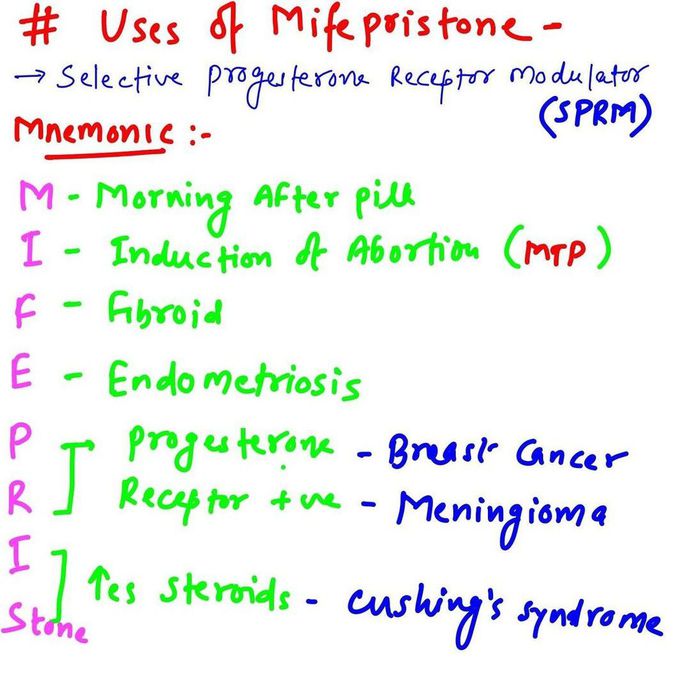 # Uses of Mifepristone -
→ Selective Progesterone Receptor Modulator
(SPRM)
Mnemonic :-
M - Morning After pill
I - Induction of Abortion (MTP)
F - Fibroid
E - Endometriosis
P Progesterone - Breast Cancer
R Receptor +ve - Meningioma
I
↑es steroids - Cushing's syndrome
Stone